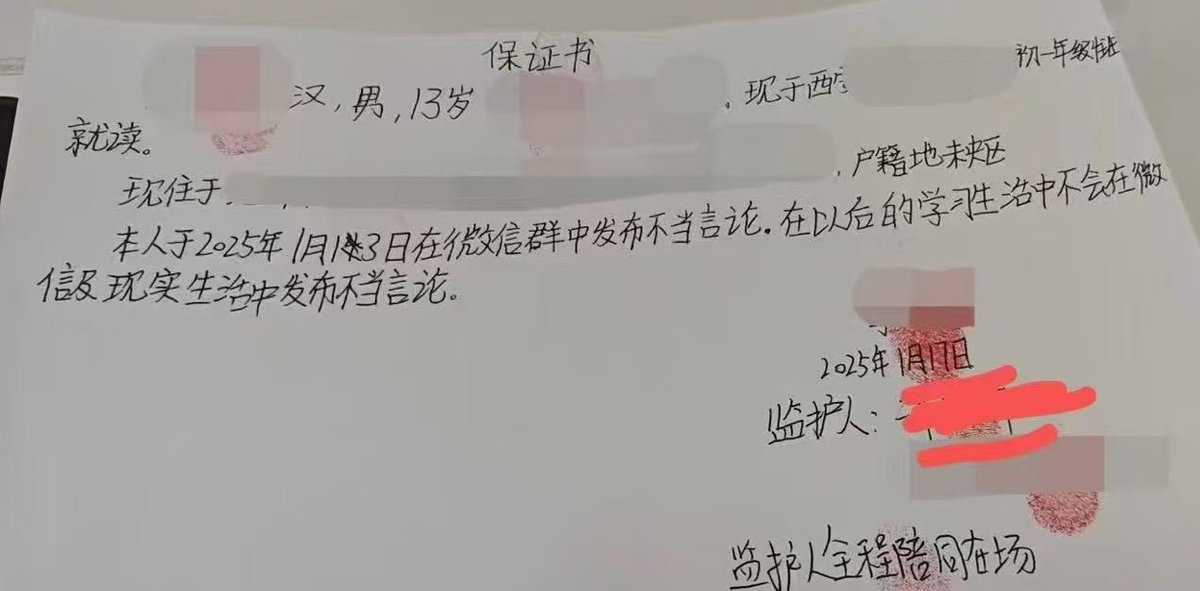 保证书
汉，男，13岁 ，现于西 初一年级
就读。
现住于 ，户籍地未央区
本人于2025年1月13日在微信群中发布不当言论。在以后的学习生活中不会在微
信及现实生活中发布不当言论。
2025年1月17日
监护人：
监护人全程陪同在场